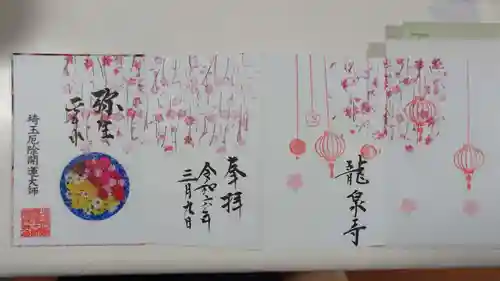 龍泉寺
奉拝
令和六年
三月九日
弥生
埼玉厄除開運大師